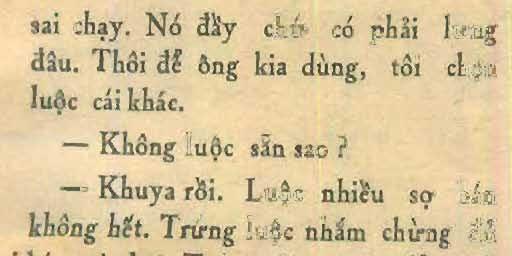 sai chạy. Nó đầy chứ có phải lưng
đâu. Thôi để ông kia dùng, tôi chọn
luộc cái khác.
— Không luộc sẵn sao ?
— Khuya rồi. Luộc nhiều sợ bán
không hết. Trứng luộc nhắm chừng đã